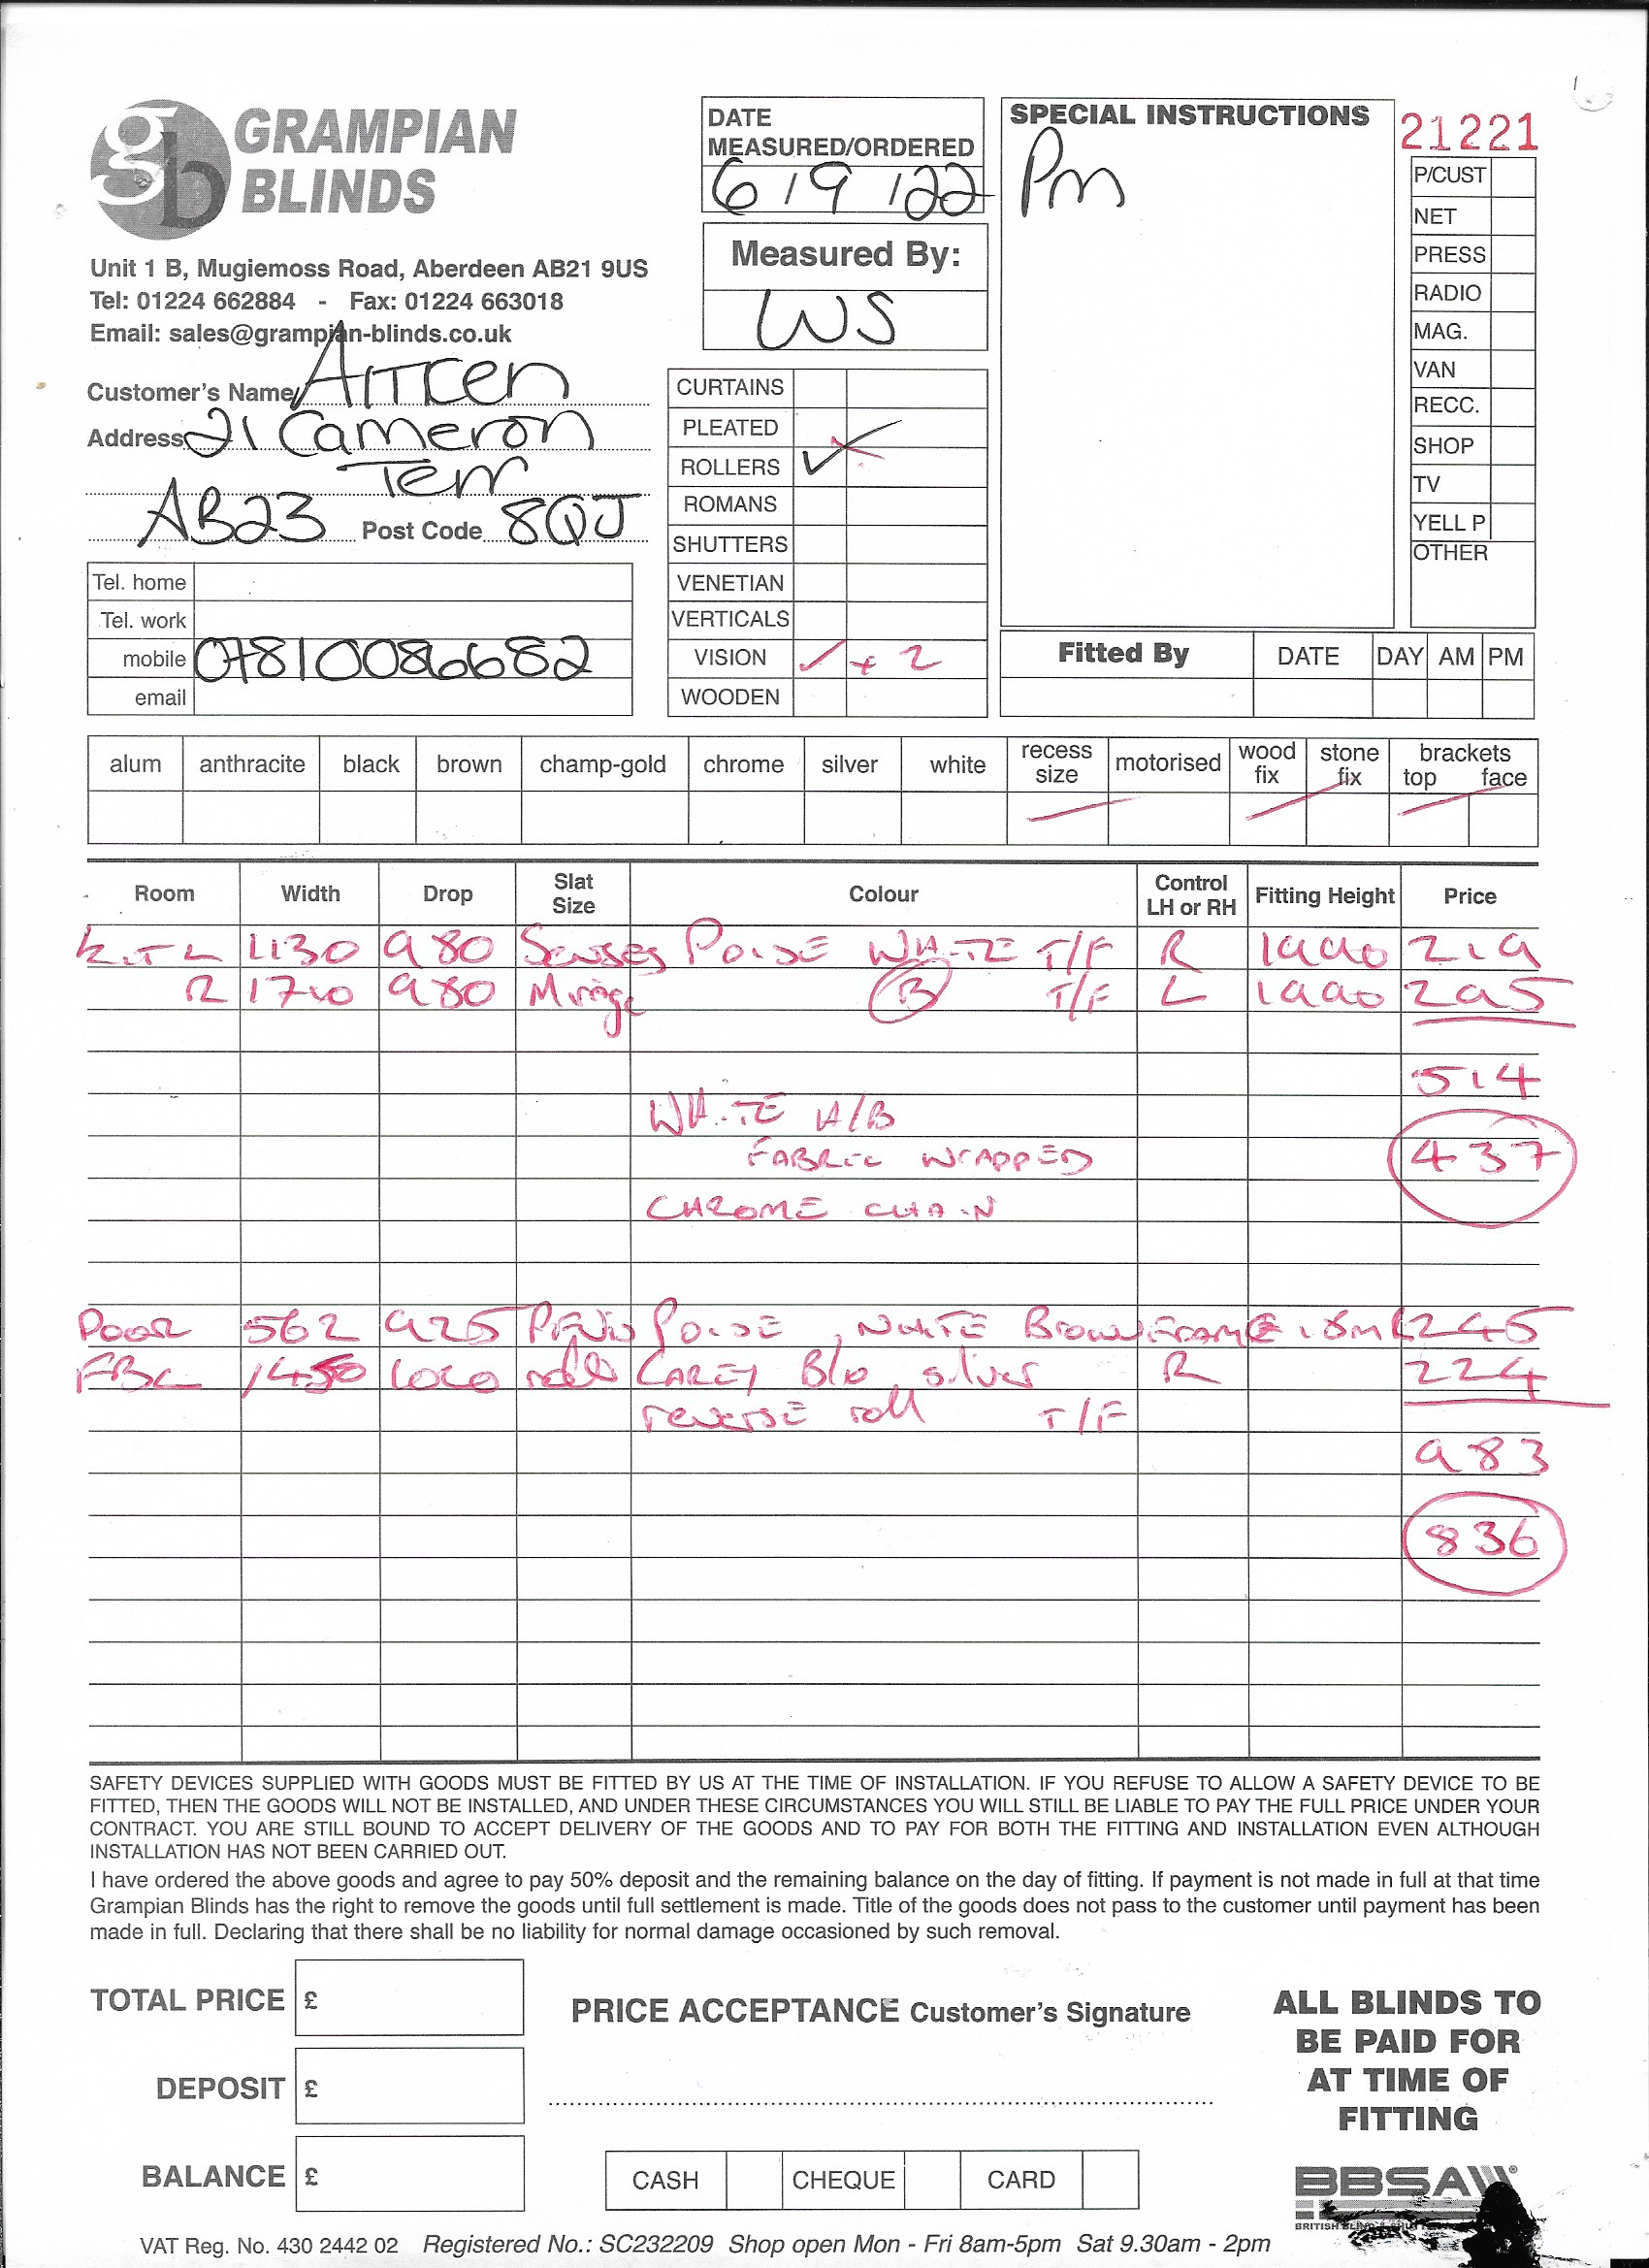 GRAMPIAN
BLINDS
Unit 1 B, Mugiemoss Road, Aberdeen AB21 9US
Tel: 01224 662884 - Fax: 01224 663018
Email: sales@grampian-blinds.co.uk
Customer's Name Aitken
Address 21 Cameron
Terr
AB23 Post Code 8QJ
Tel. home
Tel. work
mobile 07810086682
email
DATE
MEASURED/ORDERED
6 / 9 / 22
Measured By:
WS
CURTAINS
PLEATED
ROLLERS ✓
ROMANS
SHUTTERS
VENETIAN
VERTICALS
VISION ✓ + 2
WOODEN
SPECIAL INSTRUCTIONS
Pm
21221
P/CUST
NET
PRESS
RADIO
MAG.
VAN
RECC.
SHOP
TV
YELL P
OTHER
Fitted By DATE DAY AM PM
alum anthracite black brown champ-gold chrome silver white recess size motorised wood fix stone fix brackets top face
Room Width Drop Slat Size Colour Control LH or RH Fitting Height Price
KIT L 1130 980 Senses POISE WHITE T/F R 1990 219
R 1710 980 Mirage B T/F L 1990 295
514
WHITE H/B
FABRIC WRAPPED 437
CHROME CHAIN
DOOR 562 925 POISE, WHITE Brown FRAME 245
FBL 1450 1010 roller CAREY B/o silver R 224
reverse roll T/F
983
836
SAFETY DEVICES SUPPLIED WITH GOODS MUST BE FITTED BY US AT THE TIME OF INSTALLATION. IF YOU REFUSE TO ALLOW A SAFETY DEVICE TO BE
FITTED, THEN THE GOODS WILL NOT BE INSTALLED, AND UNDER THESE CIRCUMSTANCES YOU WILL STILL BE LIABLE TO PAY THE FULL PRICE UNDER YOUR
CONTRACT. YOU ARE STILL BOUND TO ACCEPT DELIVERY OF THE GOODS AND TO PAY FOR BOTH THE FITTING AND INSTALLATION EVEN ALTHOUGH
INSTALLATION HAS NOT BEEN CARRIED OUT.
I have ordered the above goods and agree to pay 50% deposit and the remaining balance on the day of fitting. If payment is not made in full at that time
Grampian Blinds has the right to remove the goods until full settlement is made. Title of the goods does not pass to the customer until payment has been
made in full. Declaring that there shall be no liability for normal damage occasioned by such removal.
TOTAL PRICE £
DEPOSIT £
BALANCE £
PRICE ACCEPTANCE Customer's Signature
CASH CHEQUE CARD
ALL BLINDS TO
BE PAID FOR
AT TIME OF
FITTING
BBSA
VAT Reg. No. 430 2442 02 Registered No.: SC232209 Shop open Mon - Fri 8am-5pm Sat 9.30am - 2pm